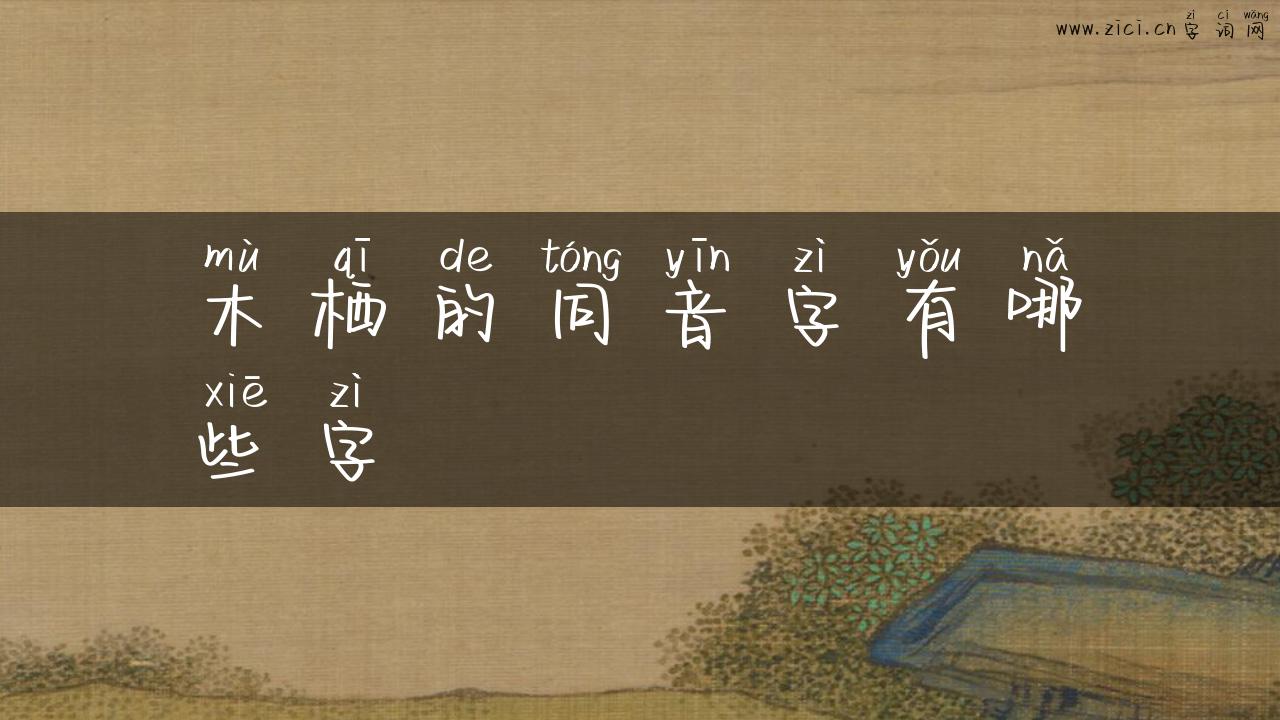 zì cí wǎng
www.zici.cn 字词网
mù qī de tóng yīn zì yǒu nǎ
木栖的同音字有哪
xiē zì
些字